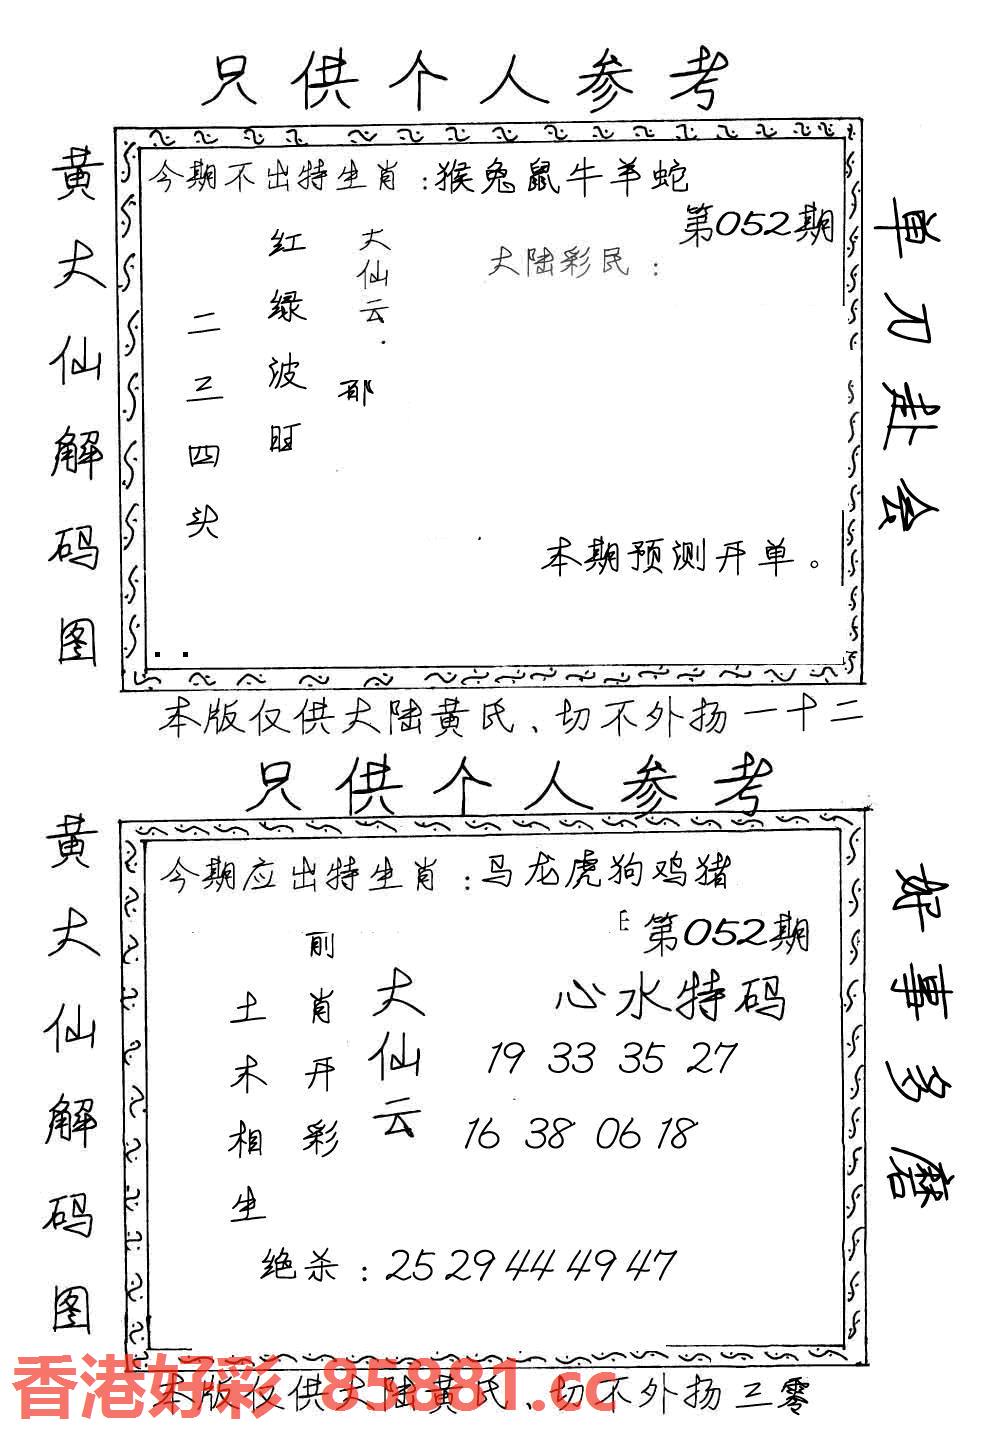 只供个人参考
黄大仙解码图
今期不出特生肖:猴兔鼠牛羊蛇
第052期
大陆彩民:
大仙云.
红绿波旺
二三四头
本期预测开单。
单刀赴会
本版仅供大陆黄氏、切不外扬一十二
只供个人参考
黄大仙解码图
今期应出特生肖:马龙虎狗鸡猪
第052期
大仙云
前肖开彩
土木相生
心水特码
19 33 35 27
16 38 06 18
绝杀:25 29 44 49 47
好事多磨
本版仅供大陆黄氏、切不外扬三零
香港好彩 85881.cc